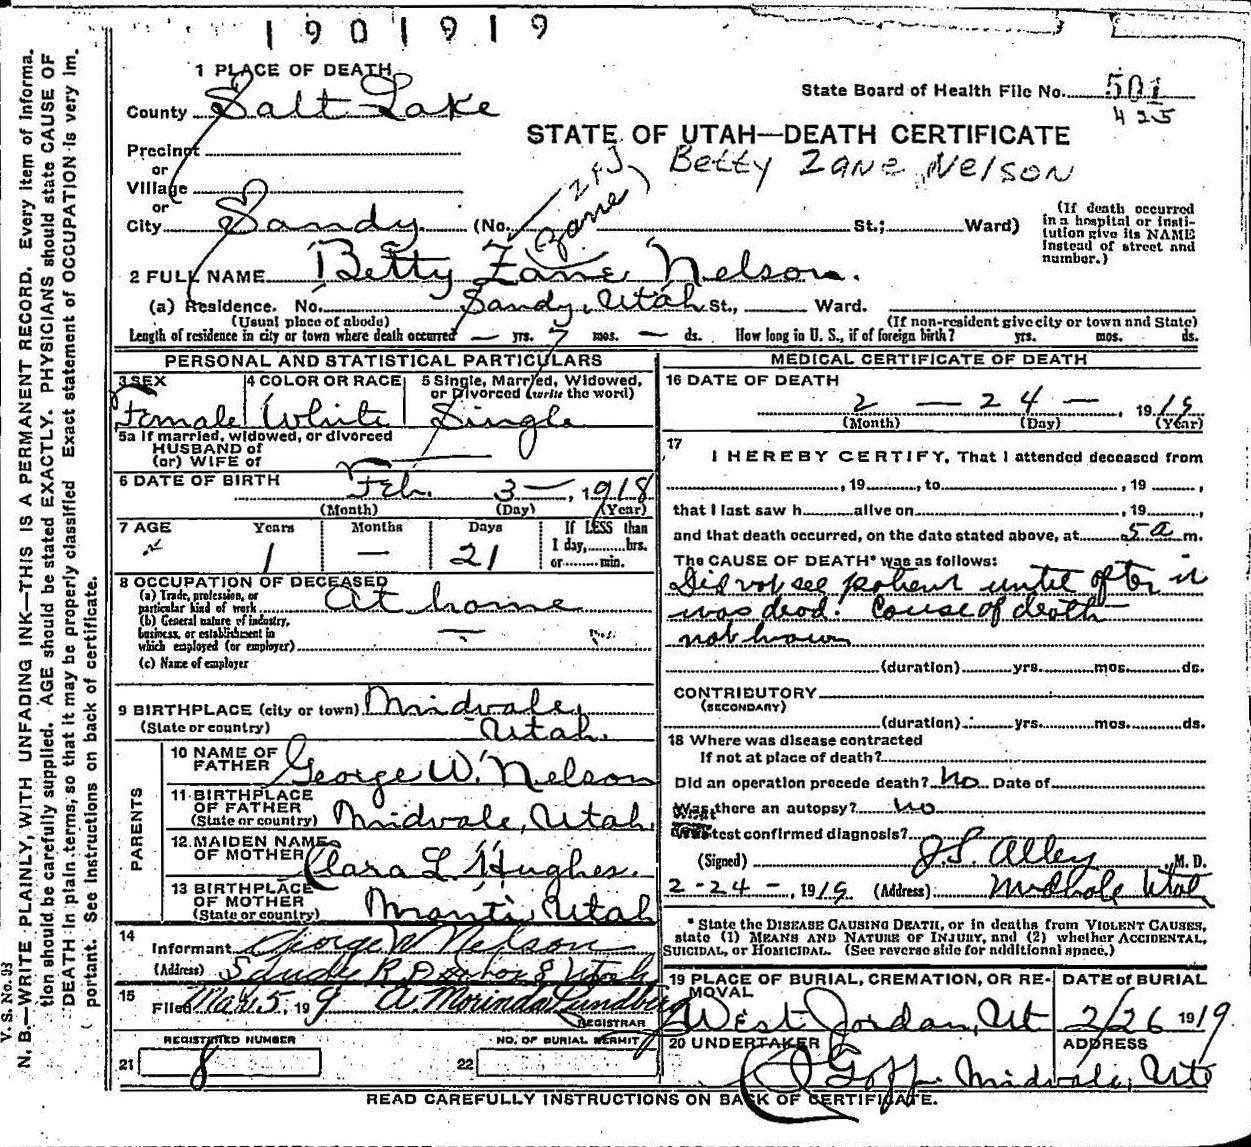 1901919
1 PLACE OF DEATH
State Board of Health File No. 501
425
County Salt Lake
STATE OF UTAH—DEATH CERTIFICATE
Precinct
or
Betty Zane Nelson
Village
or
City Sandy (No. St.; Ward)
Zane
(If death occurred in a hospital or insti-
tution give its NAME instead of street and number.)
2 FULL NAME Betty Zane Nelson.
(a) Residence. No. Sandy, Utah St., Ward.
(Usual place of abode) (If non-resident give city or town and State)
Length of residence in city or town where death occurred — yrs. 7 mos. — ds. How long in U. S., if of foreign birth? yrs. mos. ds.
PERSONAL AND STATISTICAL PARTICULARS
3 SEX
Female
4 COLOR OR RACE
White
5 Single, Married, Widowed,
or Divorced (write the word)
Single
5a If married, widowed, or divorced
HUSBAND of
(or) WIFE of
6 DATE OF BIRTH Feb. 3 —, 1918
(Month) (Day) (Year)
7 AGE Years Months Days If LESS than
1 — 21 1 day, hrs.
or min.
8 OCCUPATION OF DECEASED
(a) Trade, profession, or
particular kind of work At home
(b) General nature of industry,
business, or establishment in
which employed (or employer) —
(c) Name of employer
9 BIRTHPLACE (city or town) Midvale,
(State or country) Utah.
PARENTS
10 NAME OF
FATHER George W. Nelson
11 BIRTHPLACE
OF FATHER
(State or country) Midvale, Utah.
12 MAIDEN NAME
OF MOTHER Clara L Hughes.
13 BIRTHPLACE
OF MOTHER
(State or country) Manti, Utah
14
Informant George W Nelson
(Address) Sandy R D box 8 Utah
15
Filed Mar. 5, 1919 A. Morinda Lundberg
REGISTRAR
REGISTERED NUMBER NO. OF BURIAL PERMIT
21 8 22
MEDICAL CERTIFICATE OF DEATH
16 DATE OF DEATH
2 — 24 —, 1919
(Month) (Day) (Year)
17
I HEREBY CERTIFY, That I attended deceased from
, 19 , to , 19 ,
that I last saw h alive on , 19 ,
and that death occurred, on the date stated above, at 5 a m.
The CAUSE OF DEATH* was as follows:
Did not see patient until after it
was dead. Cause of death
not known
(duration) yrs. mos. ds.
CONTRIBUTORY
(SECONDARY)
(duration) yrs. mos. ds.
18 Where was disease contracted
If not at place of death?
Did an operation precede death? No Date of
Was there an autopsy? No
What test confirmed diagnosis?
(Signed) J. S. Alley, M. D.
2-24-, 1919 (Address) Midvale Utah
* State the DISEASE CAUSING DEATH, or in deaths from VIOLENT CAUSES,
state (1) MEANS AND NATURE OF INJURY, and (2) whether ACCIDENTAL,
SUICIDAL, or HOMICIDAL. (See reverse side for additional space.)
19 PLACE OF BURIAL, CREMATION, OR RE-
MOVAL
West Jordan, Ut
DATE OF BURIAL
2/26 1919
20 UNDERTAKER ADDRESS
Goff Midvale, Ut
READ CAREFULLY INSTRUCTIONS ON BACK OF CERTIFICATE.
V. S. No. 93
N. B.—WRITE PLAINLY, WITH UNFADING INK—THIS IS A PERMANENT RECORD. Every item of informa-
tion should be carefully supplied. AGE should be stated EXACTLY. PHYSICIANS should state CAUSE OF
DEATH in plain terms, so that it may be properly classified. Exact statement of OCCUPATION is very im-
portant. See instructions on back of certificate.